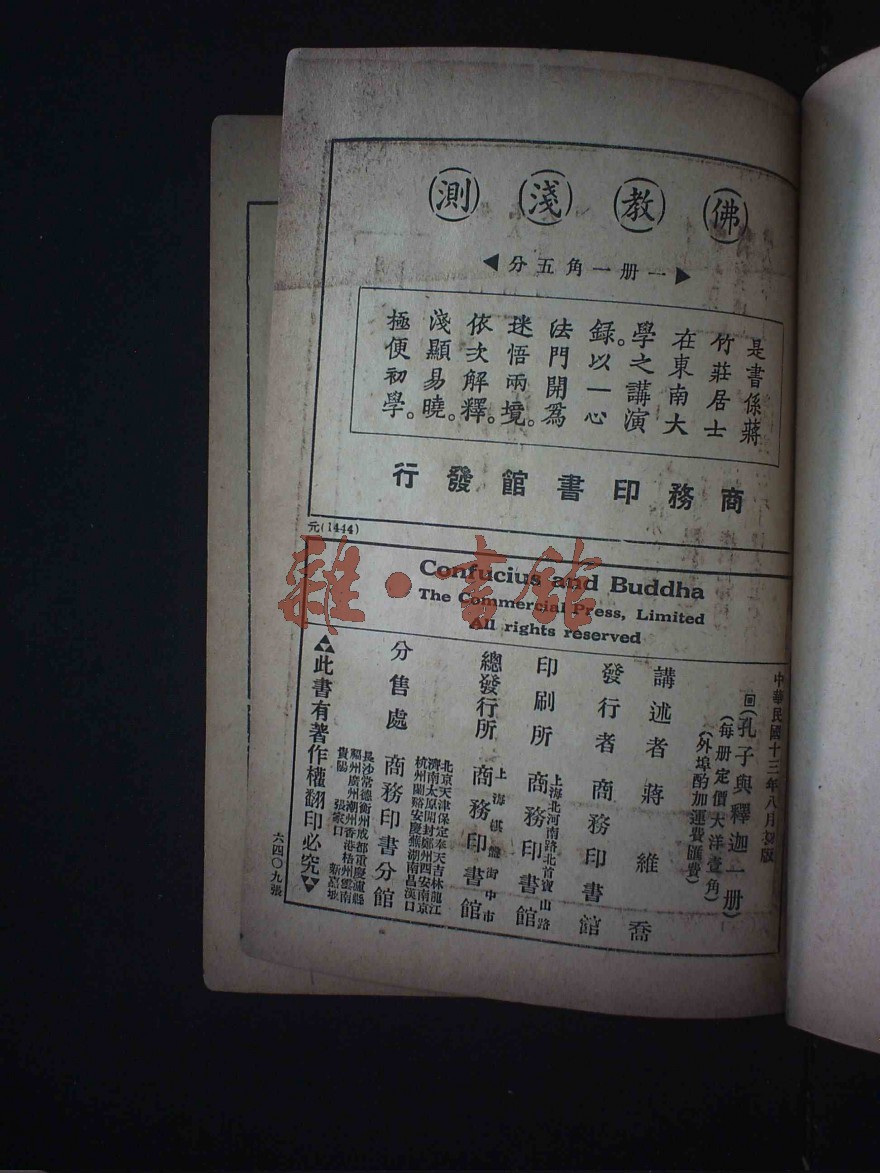 佛教淺測
一册一角五分
是書係蔣
竹莊居士
在東南大
學之講演
錄。以一心
法門開爲
迷悟兩境。
依次解釋。
淺顯易曉。
極便初學。
商務印書館發行
元(1444)
雜·書館
Confucius and Buddha
The Commercial Press, Limited
All rights reserved
中華民國十三年八月初版
(孔子與釋迦一册)
(每册定價大洋壹角)
(外埠酌加運費匯費)
講述者 蔣維喬
發行者 商務印書館
印刷所 上海北河南路北首寶山路 商務印書館
總發行所 上海棋盤街中市 商務印書館
分售處 商務印書分館
北京天津保定奉天吉林龍江
濟南太原開封鄭州西安南京
杭州蘭谿安慶蕪湖南昌漢口
長沙常德衡州成都重慶瀘縣
福州廣州潮州香港梧州雲南
貴陽 張家口 新嘉坡
此書有著作權翻印必究
六四〇九張